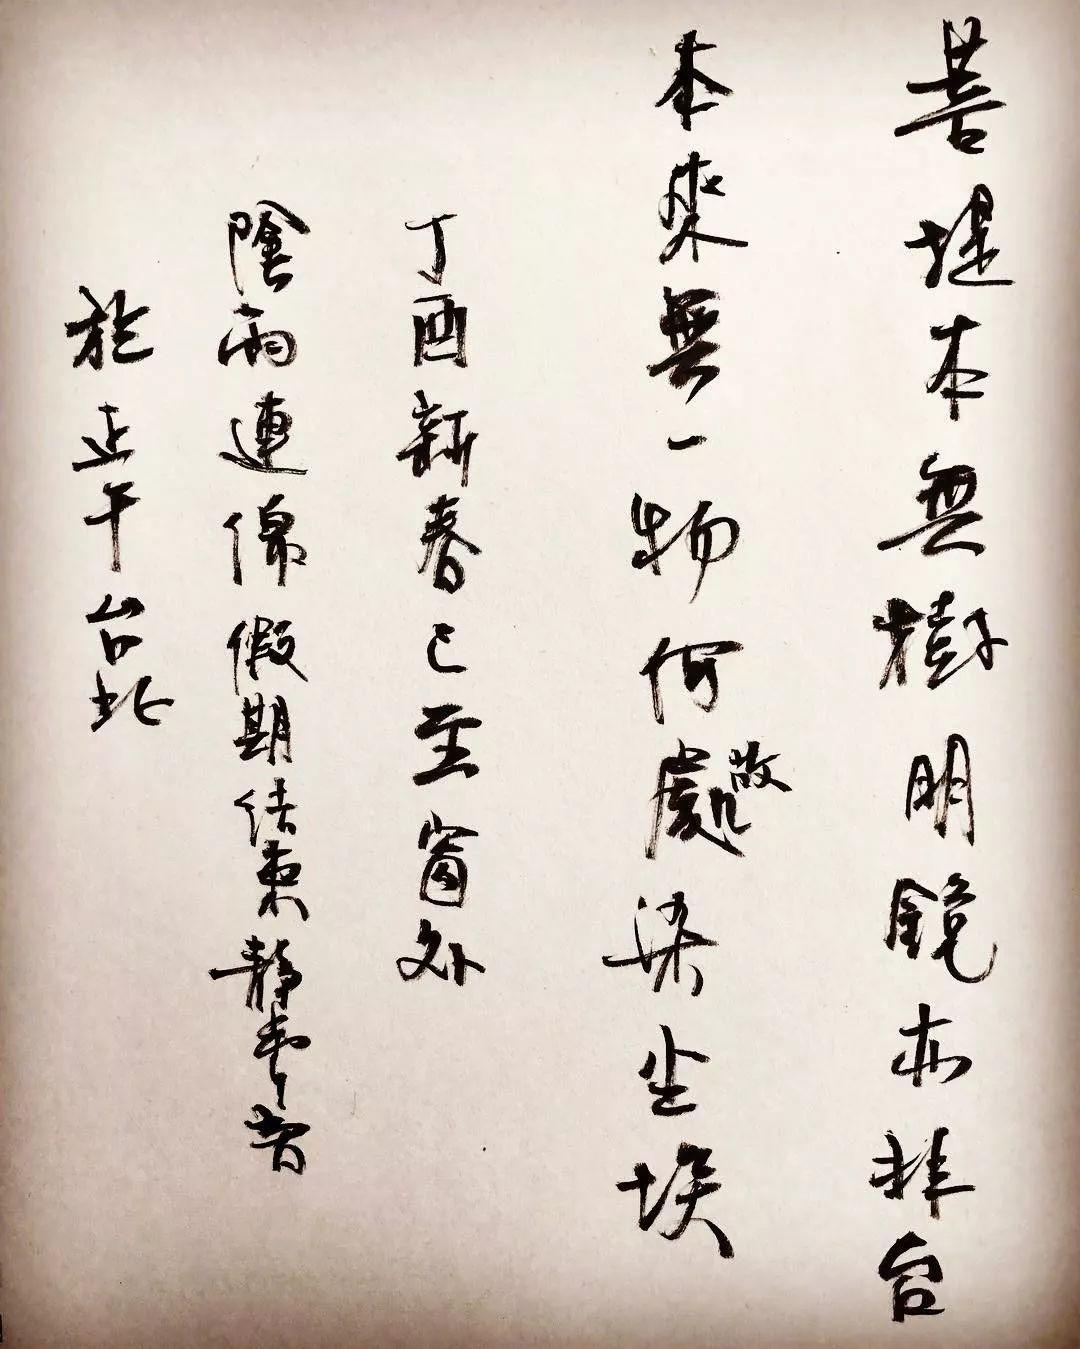 菩提本無樹明鏡亦非台
本來無一物何處故染尘埃
丁酉新春已至窗外
陰雨連綿假期結束靜
於正午台北